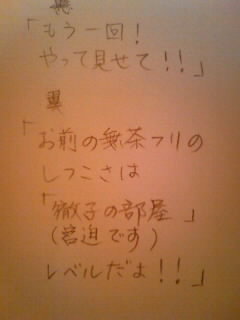 「もう一回!
やって見せて!!」
翼
「お前の無茶フリの
しつこさは
「徹子の部屋」
(宮迫です)
レベルだよ!!」